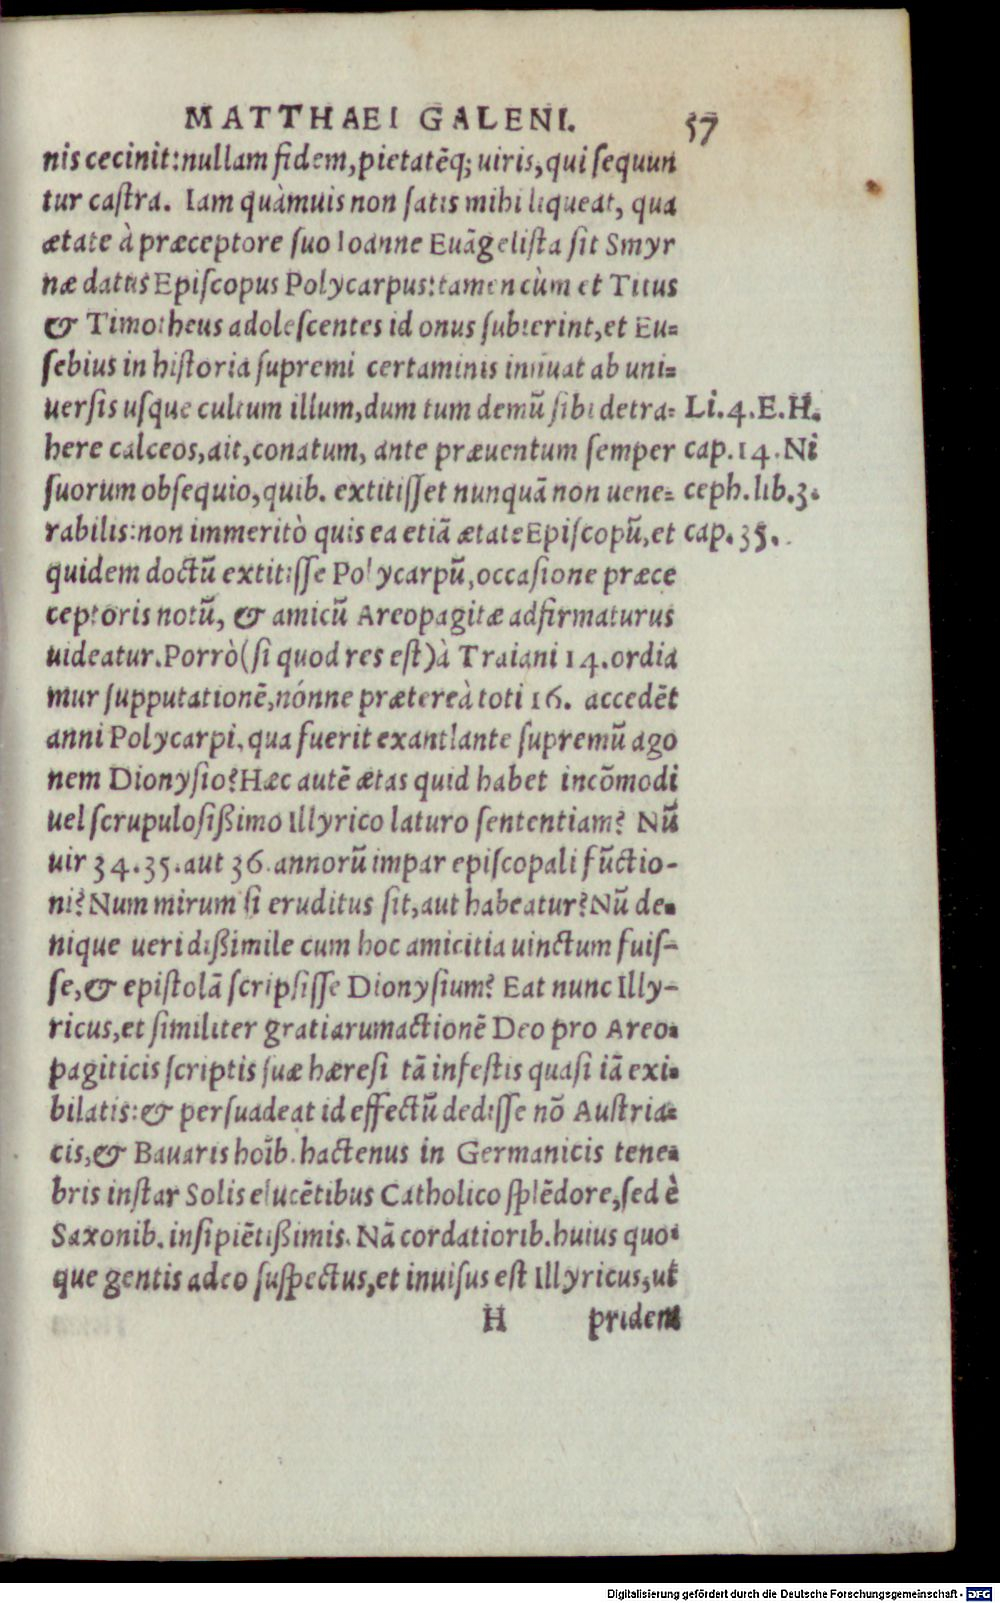 MATTHAEI GALENI. 57
nis cecinit: nullam fidem, pietatēq; uiris, qui sequun
tur castra. Iam quàmuis non satis mihi liqueat, qua
ætate à præceptore suo Ioanne Euāgelista sit Smyr
næ datus Episcopus Polycarpus: tamen cùm et Titus
& Timotheus adolescentes id onus subierint, et Eu=
sebius in historia supremi certaminis innuat ab uni=
uersis usque cultum illum, dum tum demū sibi detra=
here calceos, ait, conatum, ante præuentum semper
suorum obsequio, quib. extitisset nunquā non uene=
rabilis: non immeritò quis ea etiā ætate Episcopū, et
Li. 4. E. H.
cap. 14. Ni
ceph. lib. 3.
cap. 35.
quidem doctū extitisse Polycarpū, occasione præce
ceptoris notū, & amicū Areopagitæ adfirmaturus
uideatur. Porrò (si quod res est) à Traiani 14. ordia
mur supputationē, nónne prætereà toti 16. accedēt
anni Polycarpi, qua fuerit exantlante supremū ago
nem Dionysio? Hæc autē ætas quid habet incōmodi
uel scrupulosißimo Illyrico laturo sententiam? Nū
uir 34. 35. aut 36. annorū impar episcopali fūctio-
ni? Num mirum si eruditus sit, aut habeatur? Nū de=
nique ueridißimile cum hoc amicitia uinctum fuis-
se, & epistolā scripsisse Dionysium? Eat nunc Illy-
ricus, et similiter gratiarumactionē Deo pro Areo=
pagiticis scriptis suæ hæresi tā infestis quasi iā exi=
bilatis: & persuadeat id effectū dedisse nō Austria=
cis, & Bavaris hoīb. hactenus in Germanicis tene=
bris instar Solis elucētibus Catholico splēdore, sed è
Saxonib. insipiētißimis. Nā cordatiorib. huius quo=
que gentis adeo suspectus, et inuisus est Illyricus, ut
H pridem
Digitalisierung gefördert durch die Deutsche Forschungsgemeinschaft - DFG